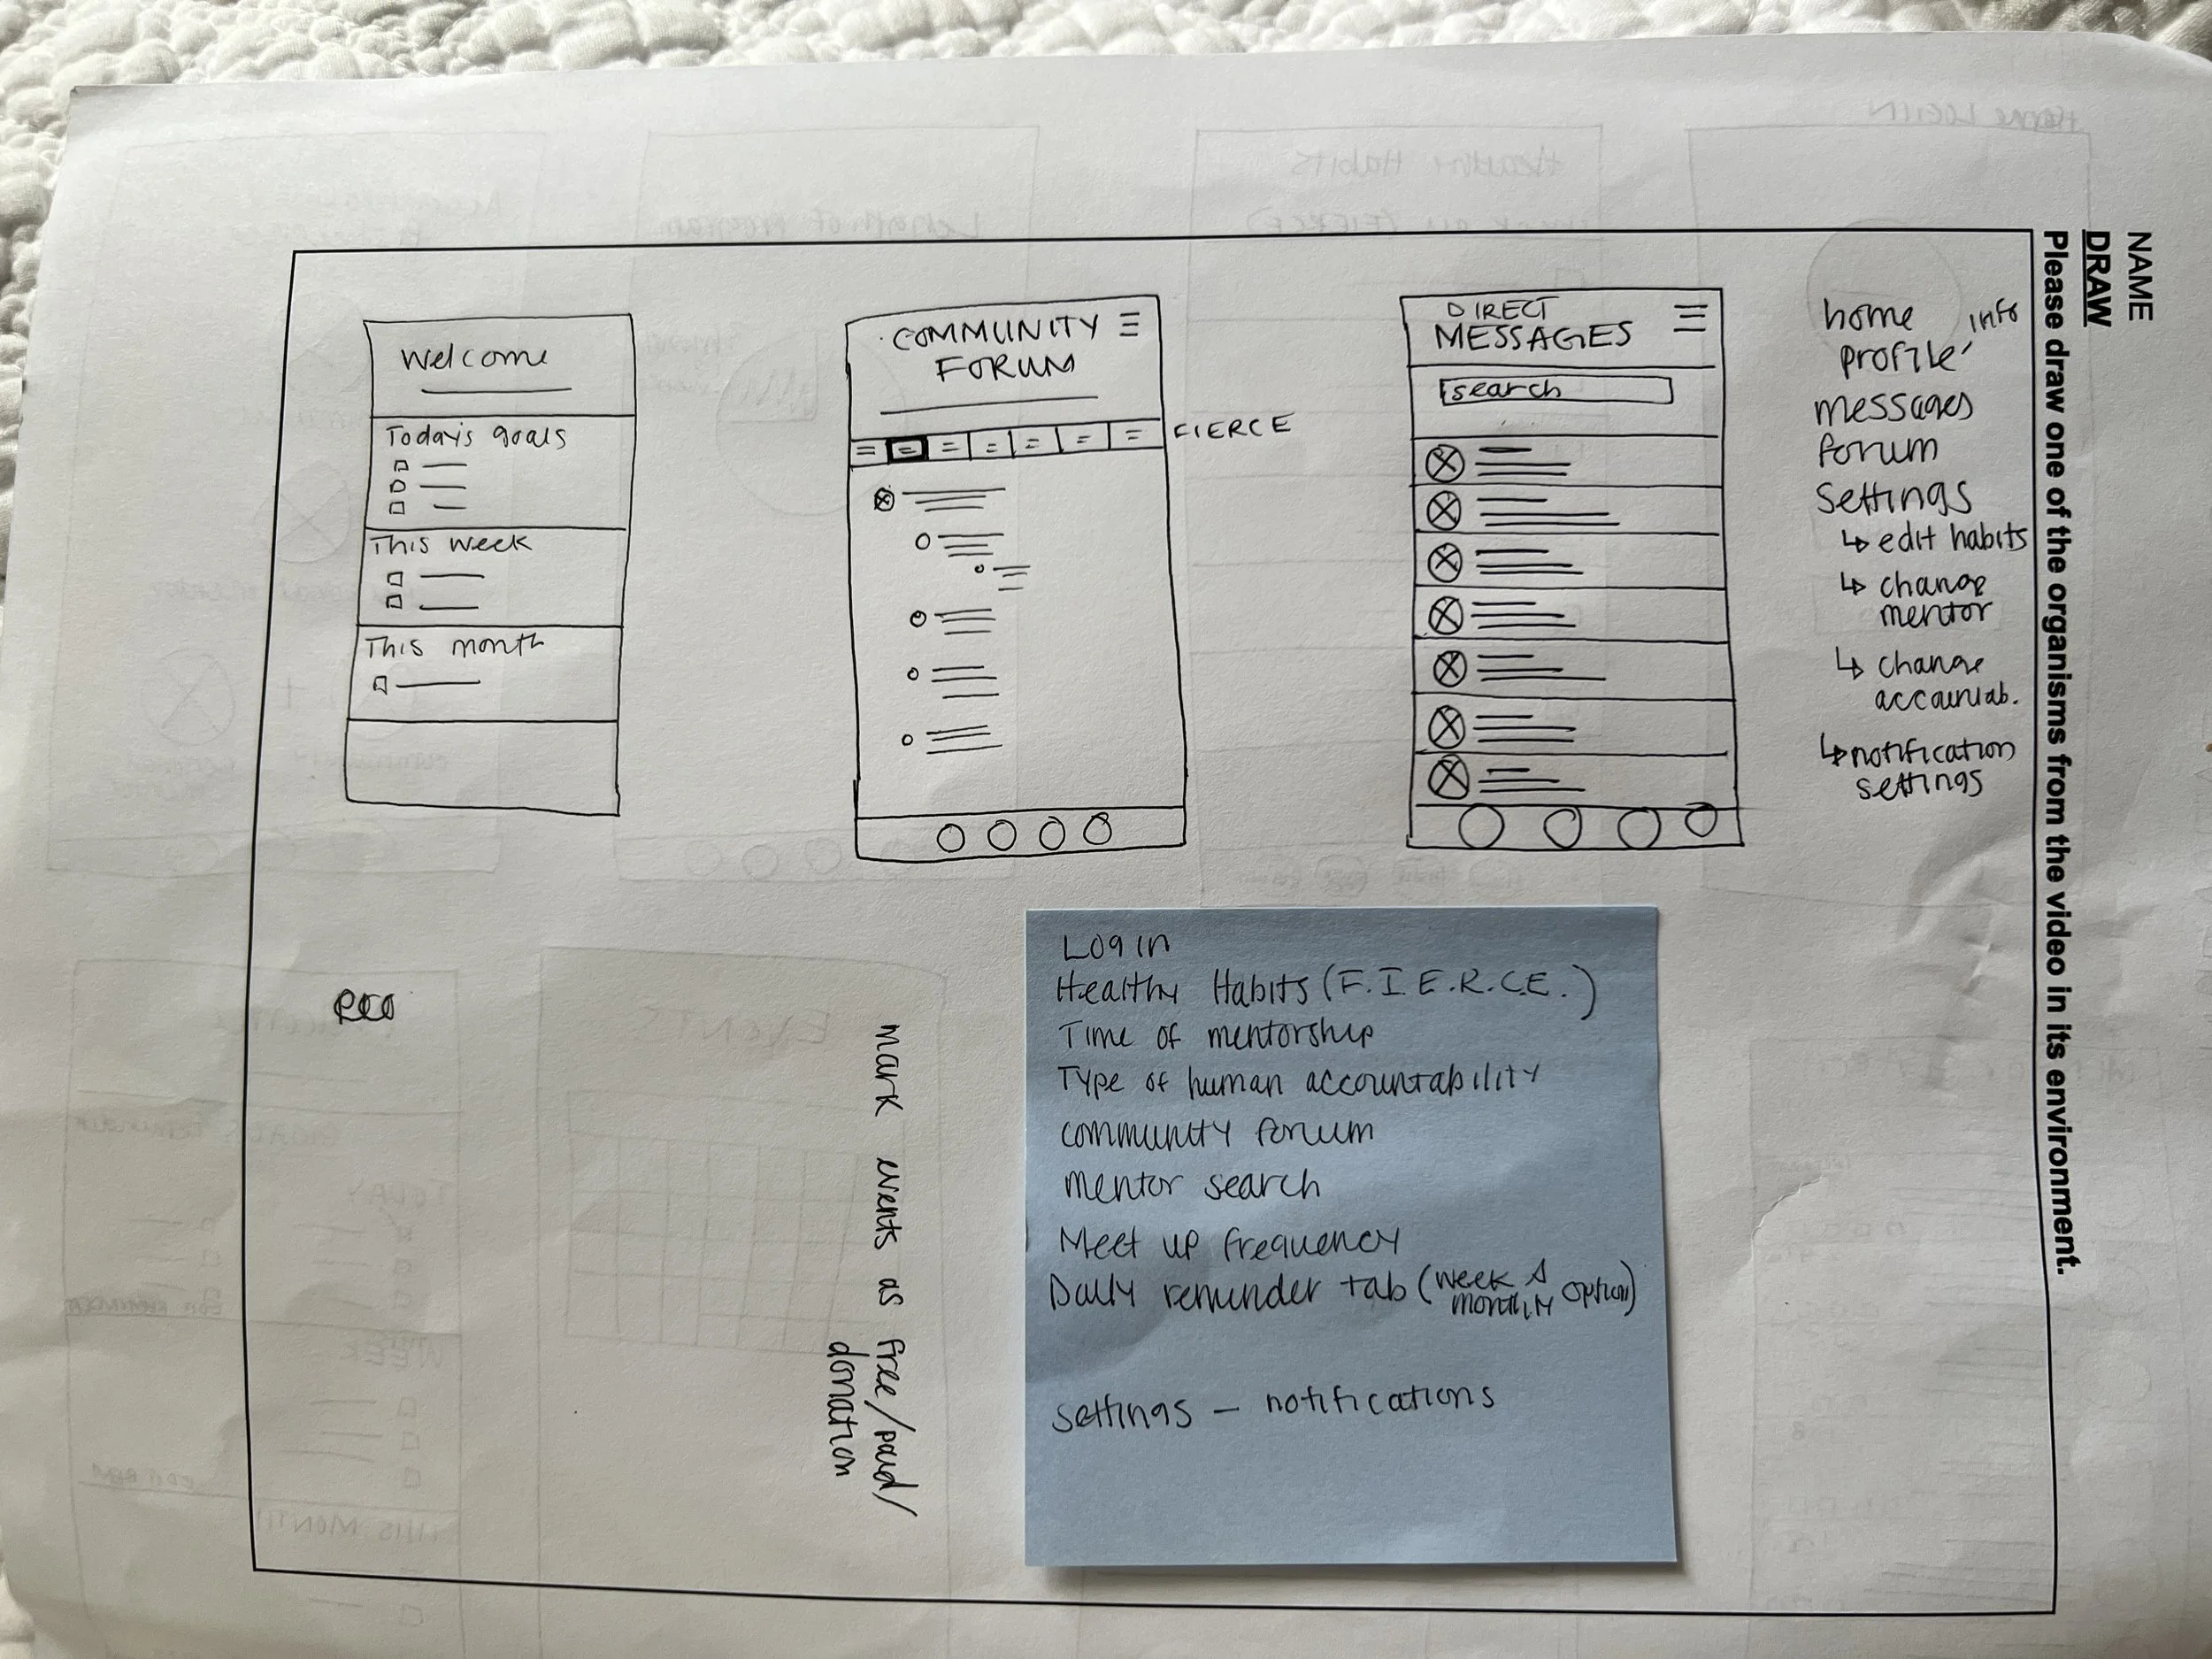 NAME
DRAW
Please draw one of the organisms from the video in its environment.
Welcome
Today's goals
This week
This month
COMMUNITY
FORUM
FIERCE
DIRECT
MESSAGES
search
home info
profile
messages
forum
settings
↳ edit habits
↳ change
mentor
↳ change
accountab.
↳ notification
settings
mark events as free/paid/
donation
Log in
Healthy Habits (F.I.E.R.C.E.)
Time of mentorship
Type of human accountability
community forum
mentor search
Meet up frequency
Daily reminder tab (week
monthly option)
settings – notifications